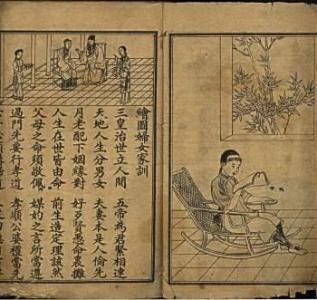 繪圖婦女家訓
三皇治世立人間　五帝為君緊相連
天地人生分男女　夫妻本是人倫先
月老配下姻緣對　好歹賢愚命裏攤
人生在世皆由命　前生造定理該然
父母之命須敬佩　媒妁之言所當遵
過門先要行孝道　孝順公婆當先